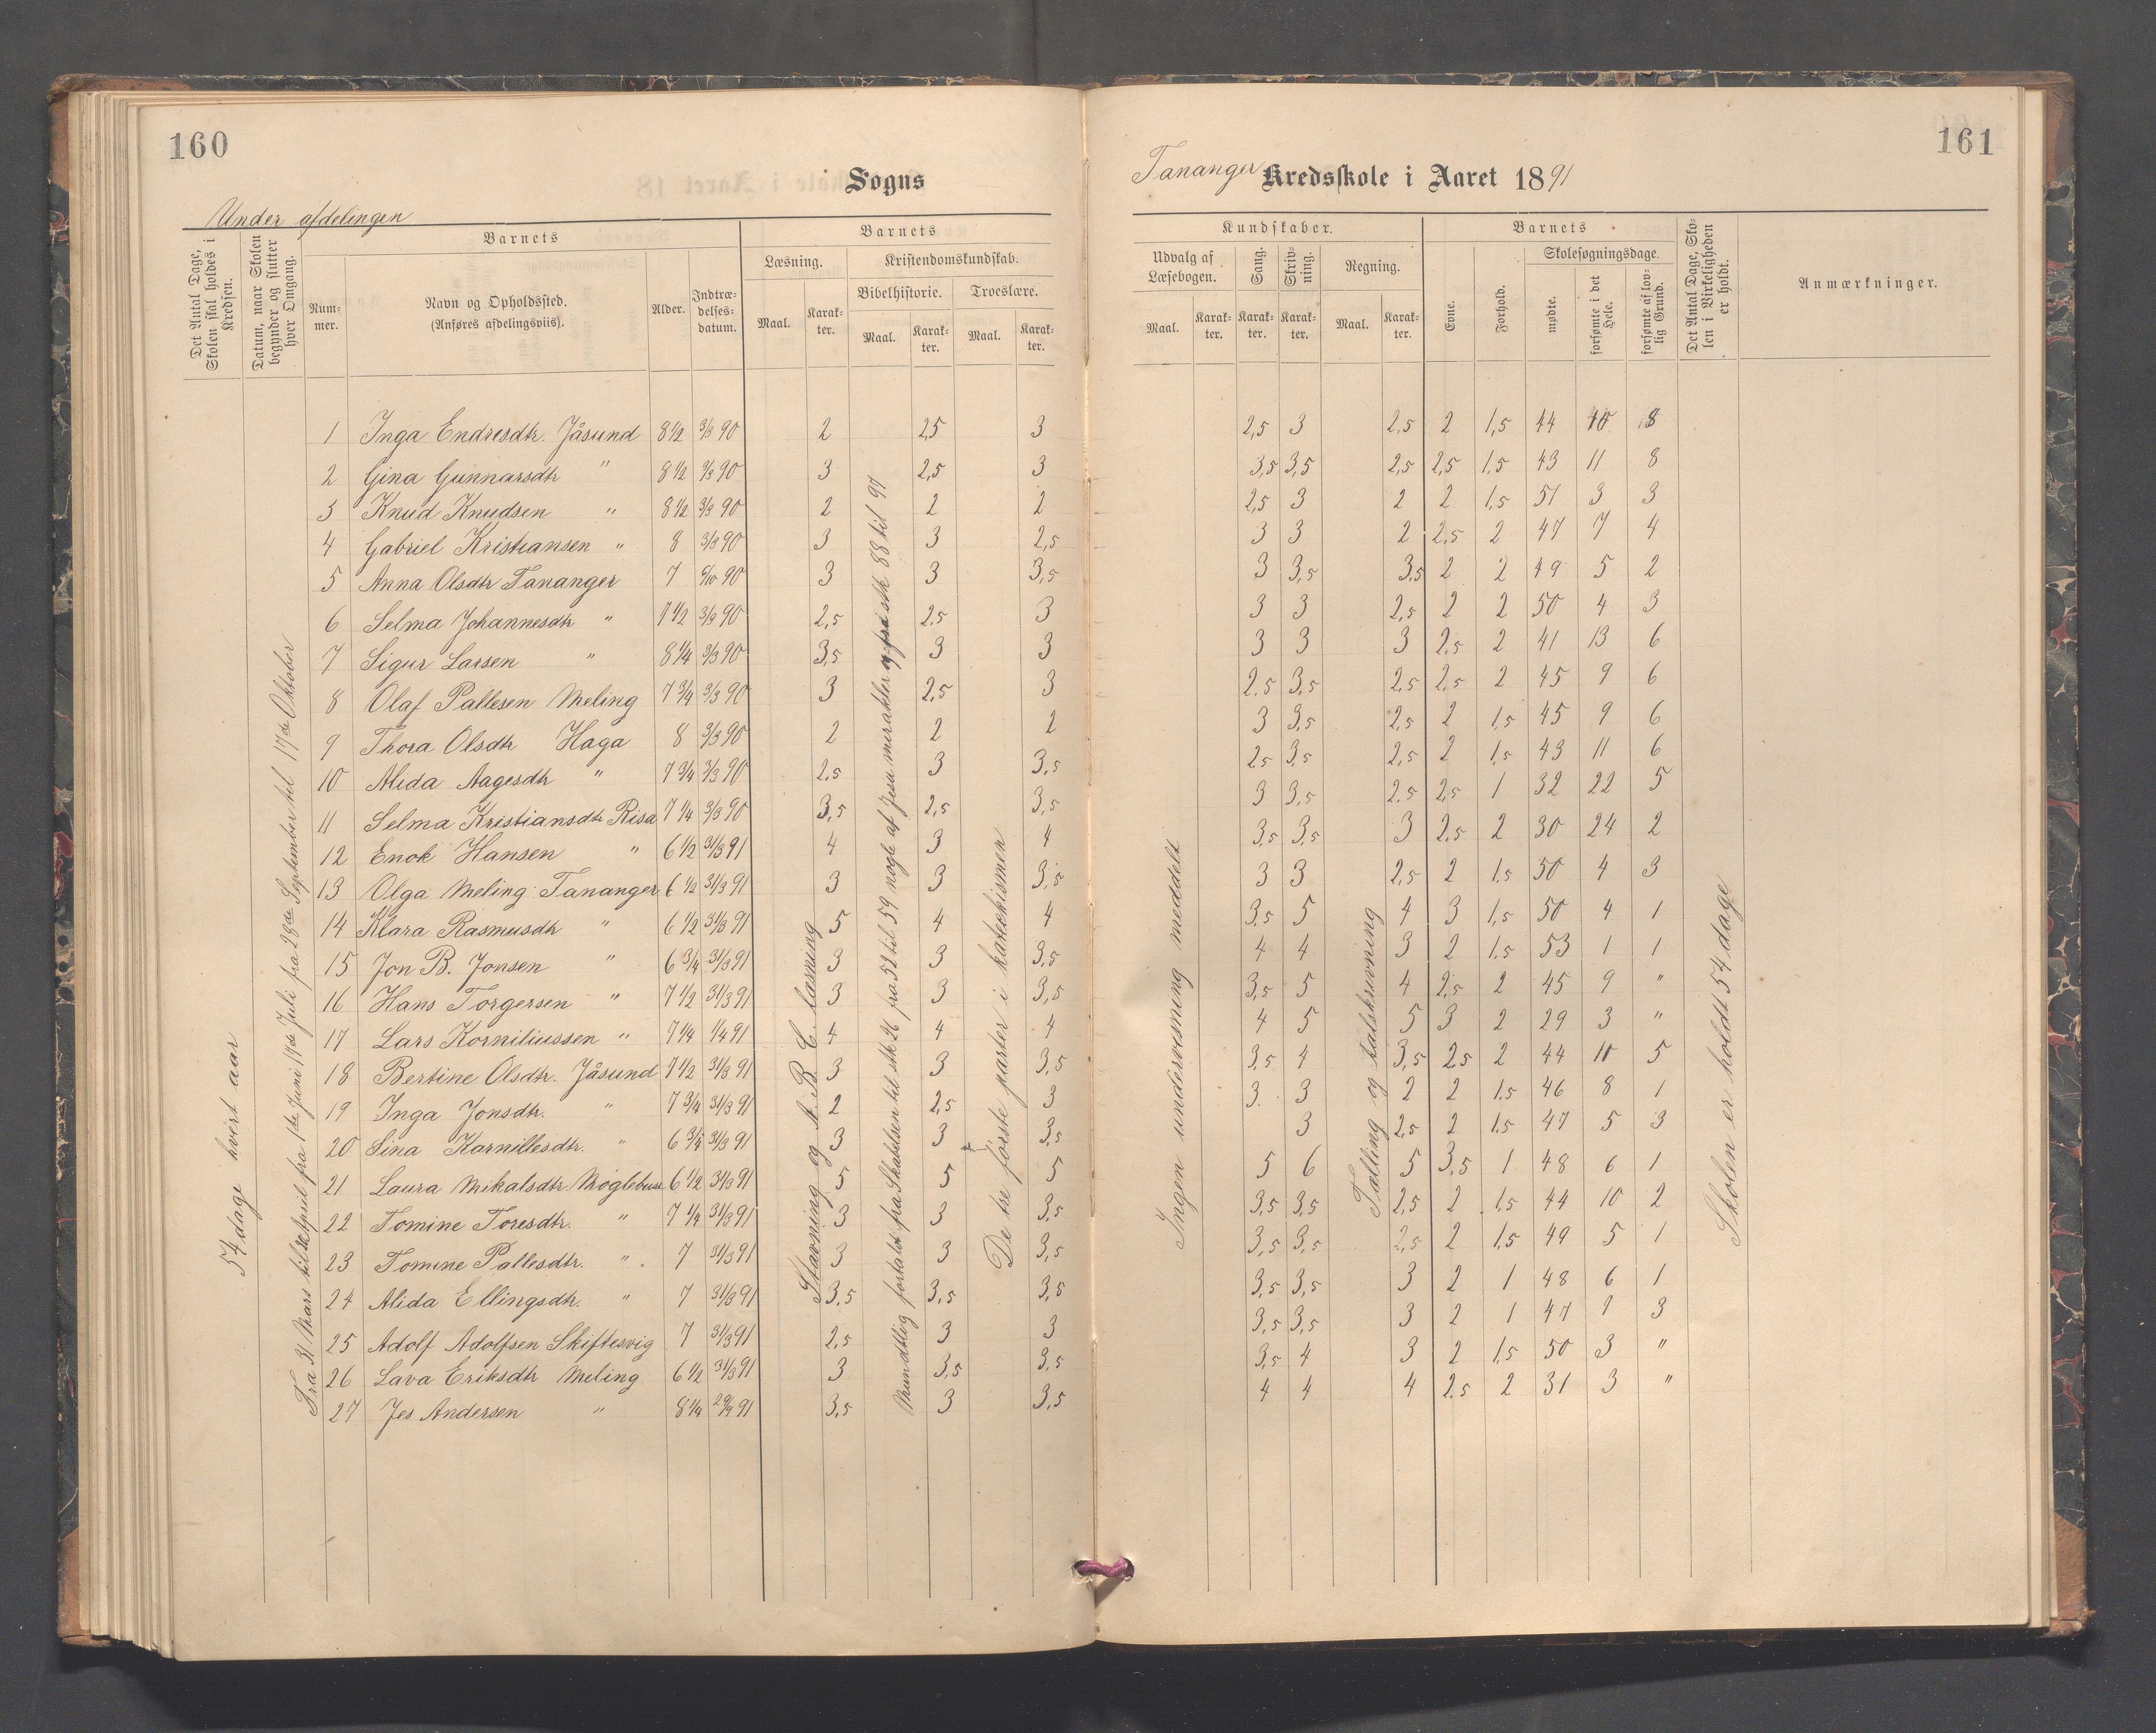 160
Sogns
Under afdelingen
Det Antal Dage, Skolen skal holdes i Kredsen.
Datum, naar Skolen begynder og slutter hver Omgang.
Barnets
Barnets
Num-mer.
Navn og Opholdssted.
(Anføres afdelingsviis).
Alder.
Indtræ-delses-datum.
Læsning.
Kristendomskundskab.
Bibelhistorie.
Troeslære.
Maal. Karak-ter. Maal. Karak-ter. Maal. Karak-ter.
54 dage hvert aar
Fra 31 Mars til April fra 1ste Juni 17de Juli fra 28de September til 17de Oktober
Stavning og A. B. C. læsning
Mundtlig fortalt fra Skabelsen til stk 26 fra 52 til 59 nogle af Jesu mirakler og fra stk 88 til 97
De tre første parter i katekismen
1 Inga Endresdtr. Jåsund 8 1/2 3/3 90 2 2,5 3
2 Gina Gunnarsdtr " 8 1/2 3/3 90 3 2,5 3
3 Knud Knudsen " 8 1/2 3/3 90 2 2 2
4 Gabriel Kristiansen " 8 3/3 90 3 3 2,5
5 Anna Olsdtr Tananger 7 6/10 90 3 3 3,5
6 Selma Johannesdtr " 7 1/2 3/3 90 2,5 2,5 3
7 Sigur Larsen " 8 1/4 3/3 90 3,5 3 3
8 Olaf Pallesen Meling 7 3/4 3/3 90 3 2,5 3
9 Thora Olsdtr Haga 8 3/3 90 2 2 2
10 Alida Aagesdtr " 7 3/4 3/3 90 2,5 3 3,5
11 Selma Kristiansdtr Risa 7 1/4 3/3 90 3,5 2,5 3,5
12 Enok Hansen " 6 1/2 31/3 91 4 3 4
13 Olga Meling Tananger 6 1/2 31/3 91 3 3 3,5
14 Klara Rasmusdtr " 6 1/2 31/3 91 5 4 4
15 Jon B. Jonsen " 6 3/4 31/3 91 3 3 3,5
16 Hans Torgersen " 7 1/2 31/3 91 3 3 3,5
17 Lars Korniliussen " 7 1/4 1/4 91 4 4 4
18 Bertine Olsdtr. Jåsund 7 1/2 31/3 91 3 3 3,5
19 Inga Jonsdtr. " 7 3/4 31/3 91 2 2,5 3
20 Sina Karnillesdtr. " 6 3/4 31/3 91 3 3 3,5
21 Laura Mikalsdtr Møglebust 6 1/2 31/3 91 5 5 5
22 Tomine Toresdtr. " 7 1/4 31/3 91 3 3 3,5
23 Tomine Pallesdtr. " 7 31/3 91 3 3 3,5
24 Alida Ellingsdtr. " 7 31/3 91 3,5 3,5 3,5
25 Adolf Adolfsen Skiftesvig 7 31/3 91 2,5 3 3
26 Lava Eriksdtr Meling 6 1/2 31/3 91 3 3,5 3,5
27 Jes Andersen " 8 1/4 29/9 91 3,5 3 3,5
161
Tananger Kredsskole i Aaret 1891
Kundskaber.
Barnets
Udvalg af Læsebogen.
Sang.
Skriv-ning.
Regning.
Evne.
Forhold.
Skolesøgningsdage.
mødte.
forsømte i det Hele.
forsømte af lov-lig Grund.
Det Antal Dage, Sko-len i Virkeligheden er holdt.
Anmærkninger.
Maal. Karak-ter. Karak-ter. Karak-ter. Maal. Karak-ter.
Ingen undervisning meddelt
Tælling og talskrivning
Skolen er holdt 54 dage
2,5 3 2,5 2 1,5 44 10 8
3,5 3,5 2,5 2,5 1,5 43 11 8
2,5 3 2 2 1,5 51 3 3
3 3 2 2,5 2 47 7 4
3 3,5 3,5 2 2 49 5 2
3 3 2,5 2 2 50 4 3
3 3 3 2,5 2 41 13 6
2,5 3,5 2,5 2,5 2 45 9 6
3 3,5 2,5 2 1,5 45 9 6
2,5 3,5 2,5 2 1,5 43 11 6
3 3,5 2,5 2,5 1 32 22 5
3,5 3,5 3 2,5 2 30 24 2
3 3 2,5 2 1,5 50 4 3
3,5 5 4 3 1,5 50 4 1
4 4 3 2 1,5 53 1 1
3,5 5 4 2,5 2 45 9 "
4 5 5 3 2 29 3 "
3,5 4 3,5 2,5 2 44 10 5
3 3 2 2 1,5 46 8 1
3 2,5 2 1,5 47 5 3
5 6 5 3,5 1 48 6 1
3,5 3,5 2,5 2 1,5 44 10 2
3,5 3,5 2,5 2 1,5 49 5 1
3,5 3,5 3 2 1 48 6 1
3,5 3,5 3 2 1 47 7 3
3,5 4 3 2 1,5 50 3 "
4 4 4 2,5 2 31 3 "